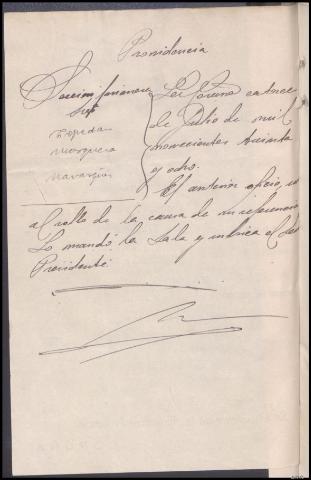 Providencia
Sección primera
La Coruña catorce
de Julio de mil
novecientos treinta
y ocho.
El anterior oficio, 
al rollo de la causa de su referencia
Lo mandó la Sala y rubrica el
Presidente